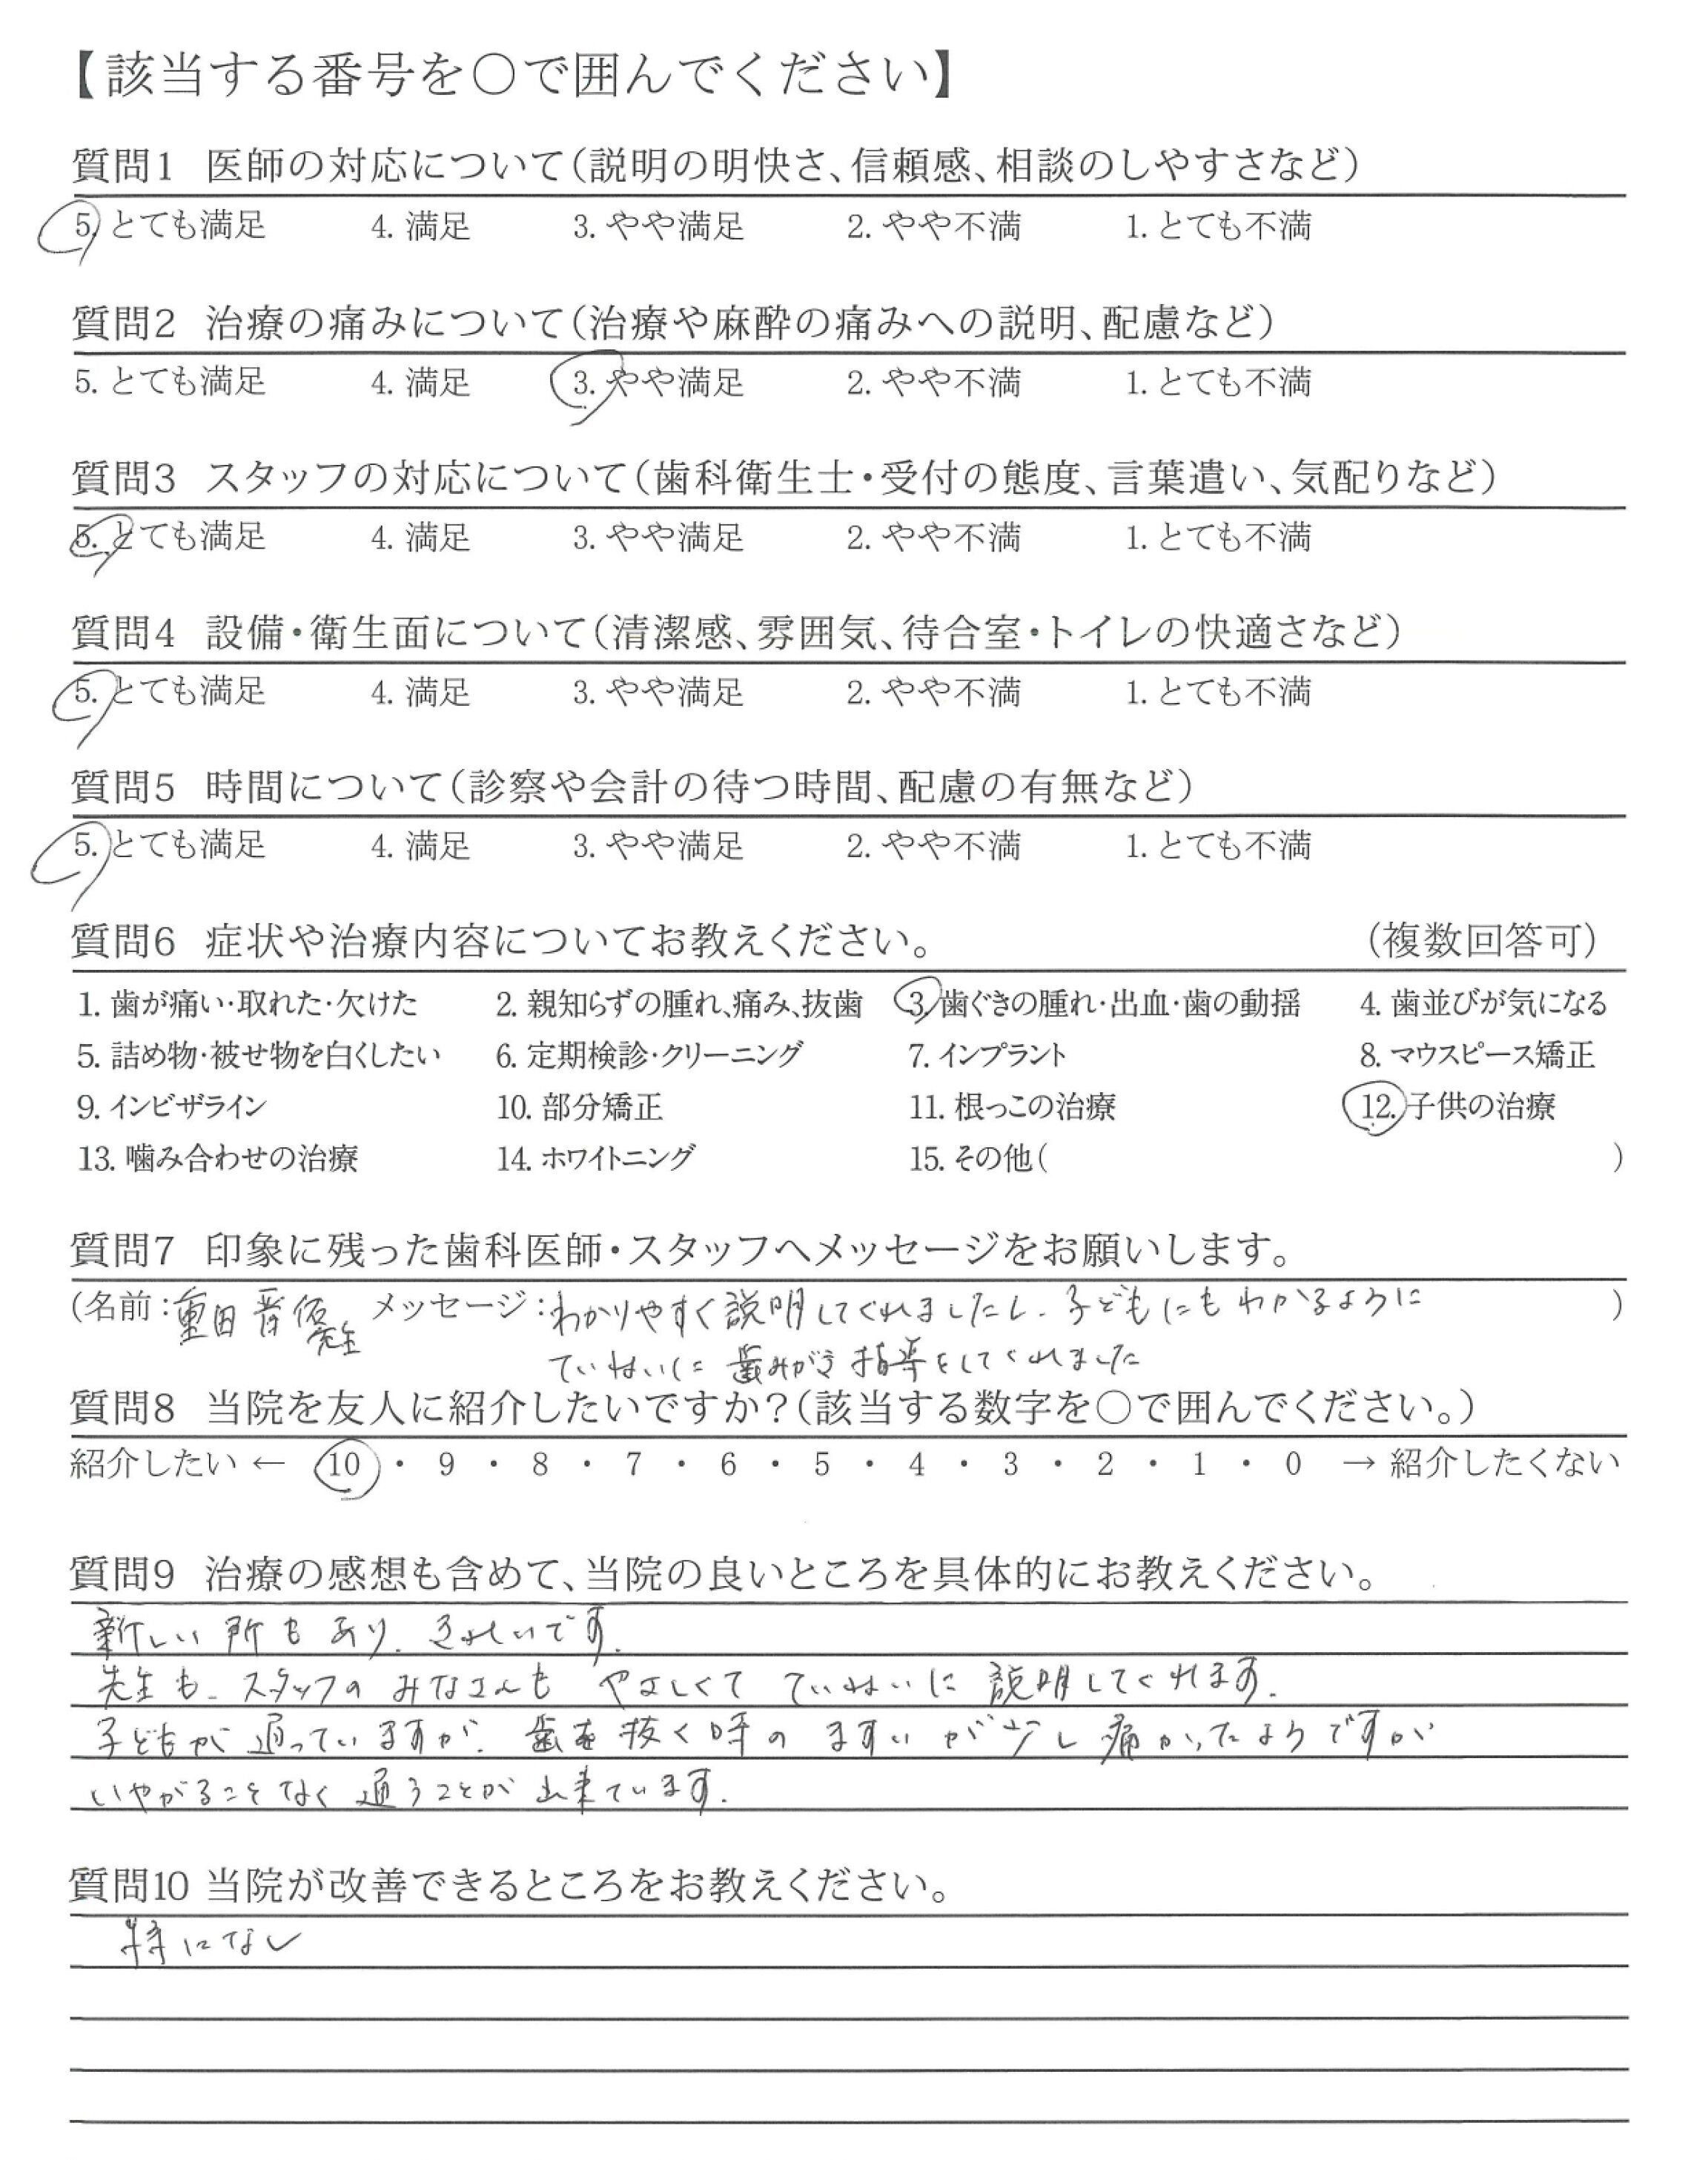 【該当する番号を○で囲んでください】
質問1 医師の対応について(説明の明快さ、信頼感、相談のしやすさなど)
5. とても満足 4. 満足 3. やや満足 2. やや不満 1. とても不満
質問2 治療の痛みについて(治療や麻酔の痛みへの説明、配慮など)
5. とても満足 4. 満足 3. やや満足 2. やや不満 1. とても不満
質問3 スタッフの対応について(歯科衛生士・受付の態度、言葉遣い、気配りなど)
5. とても満足 4. 満足 3. やや満足 2. やや不満 1. とても不満
質問4 設備・衛生面について(清潔感、雰囲気、待合室・トイレの快適さなど)
5. とても満足 4. 満足 3. やや満足 2. やや不満 1. とても不満
質問5 時間について(診察や会計の待つ時間、配慮の有無など)
5. とても満足 4. 満足 3. やや満足 2. やや不満 1. とても不満
質問6 症状や治療内容についてお教えください。 (複数回答可)
1. 歯が痛い・取れた・欠けた 2. 親知らずの腫れ、痛み、抜歯 3. 歯ぐきの腫れ・出血・歯の動揺 4. 歯並びが気になる
5. 詰め物・被せ物を白くしたい 6. 定期検診・クリーニング 7. インプラント 8. マウスピース矯正
9. インビザライン 10. 部分矯正 11. 根っこの治療 12. 子供の治療
13. 噛み合わせの治療 14. ホワイトニング 15. その他( )
質問7 印象に残った歯科医師・スタッフへメッセージをお願いします。
(名前:重田 晋 先生 メッセージ:わかりやすく説明してくれましたし、子どもにもわかるように )
ていねいに歯みがき指導をしてくれました
質問8 当院を友人に紹介したいですか?(該当する数字を○で囲んでください。)
紹介したい ← 10 ・ 9 ・ 8 ・ 7 ・ 6 ・ 5 ・ 4 ・ 3 ・ 2 ・ 1 ・ 0 → 紹介したくない
質問9 治療の感想も含めて、当院の良いところを具体的にお教えください。
新しい所もあり、きれいです。
先生も、スタッフのみなさんも やさしくて ていねいに 説明してくれます。
子どもが通っていますが、歯を抜く時のますいが少し痛かったようですが
いやがることなく通うことが出来ています。
質問10 当院が改善できるところをお教えください。
特になし